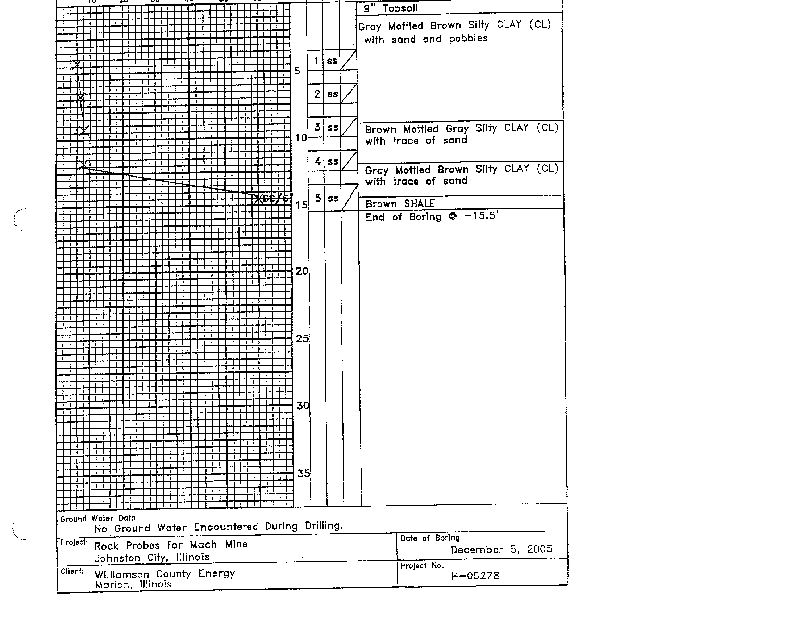 9" Topsoil
Gray Mottled Brown Silty CLAY (CL)
with sand and pebbles
1 ss
5
2 ss
3 ss
Brown Mottled Gray Silty CLAY (CL)
with trace of sand
10
4 ss
Gray Mottled Brown Silty CLAY (CL)
with trace of sand
5 ss
15
Brown SHALE
End of Boring @ -15.5'
20
25
30
35
Ground Water Data
No Ground Water Encountered During Drilling.
Project: Rock Probes For Mach Mine
Johnston City, Illinois
Date of Boring
December 5, 2005
Client: Williamson County Energy
Marion, Illinois
Project No.
05278